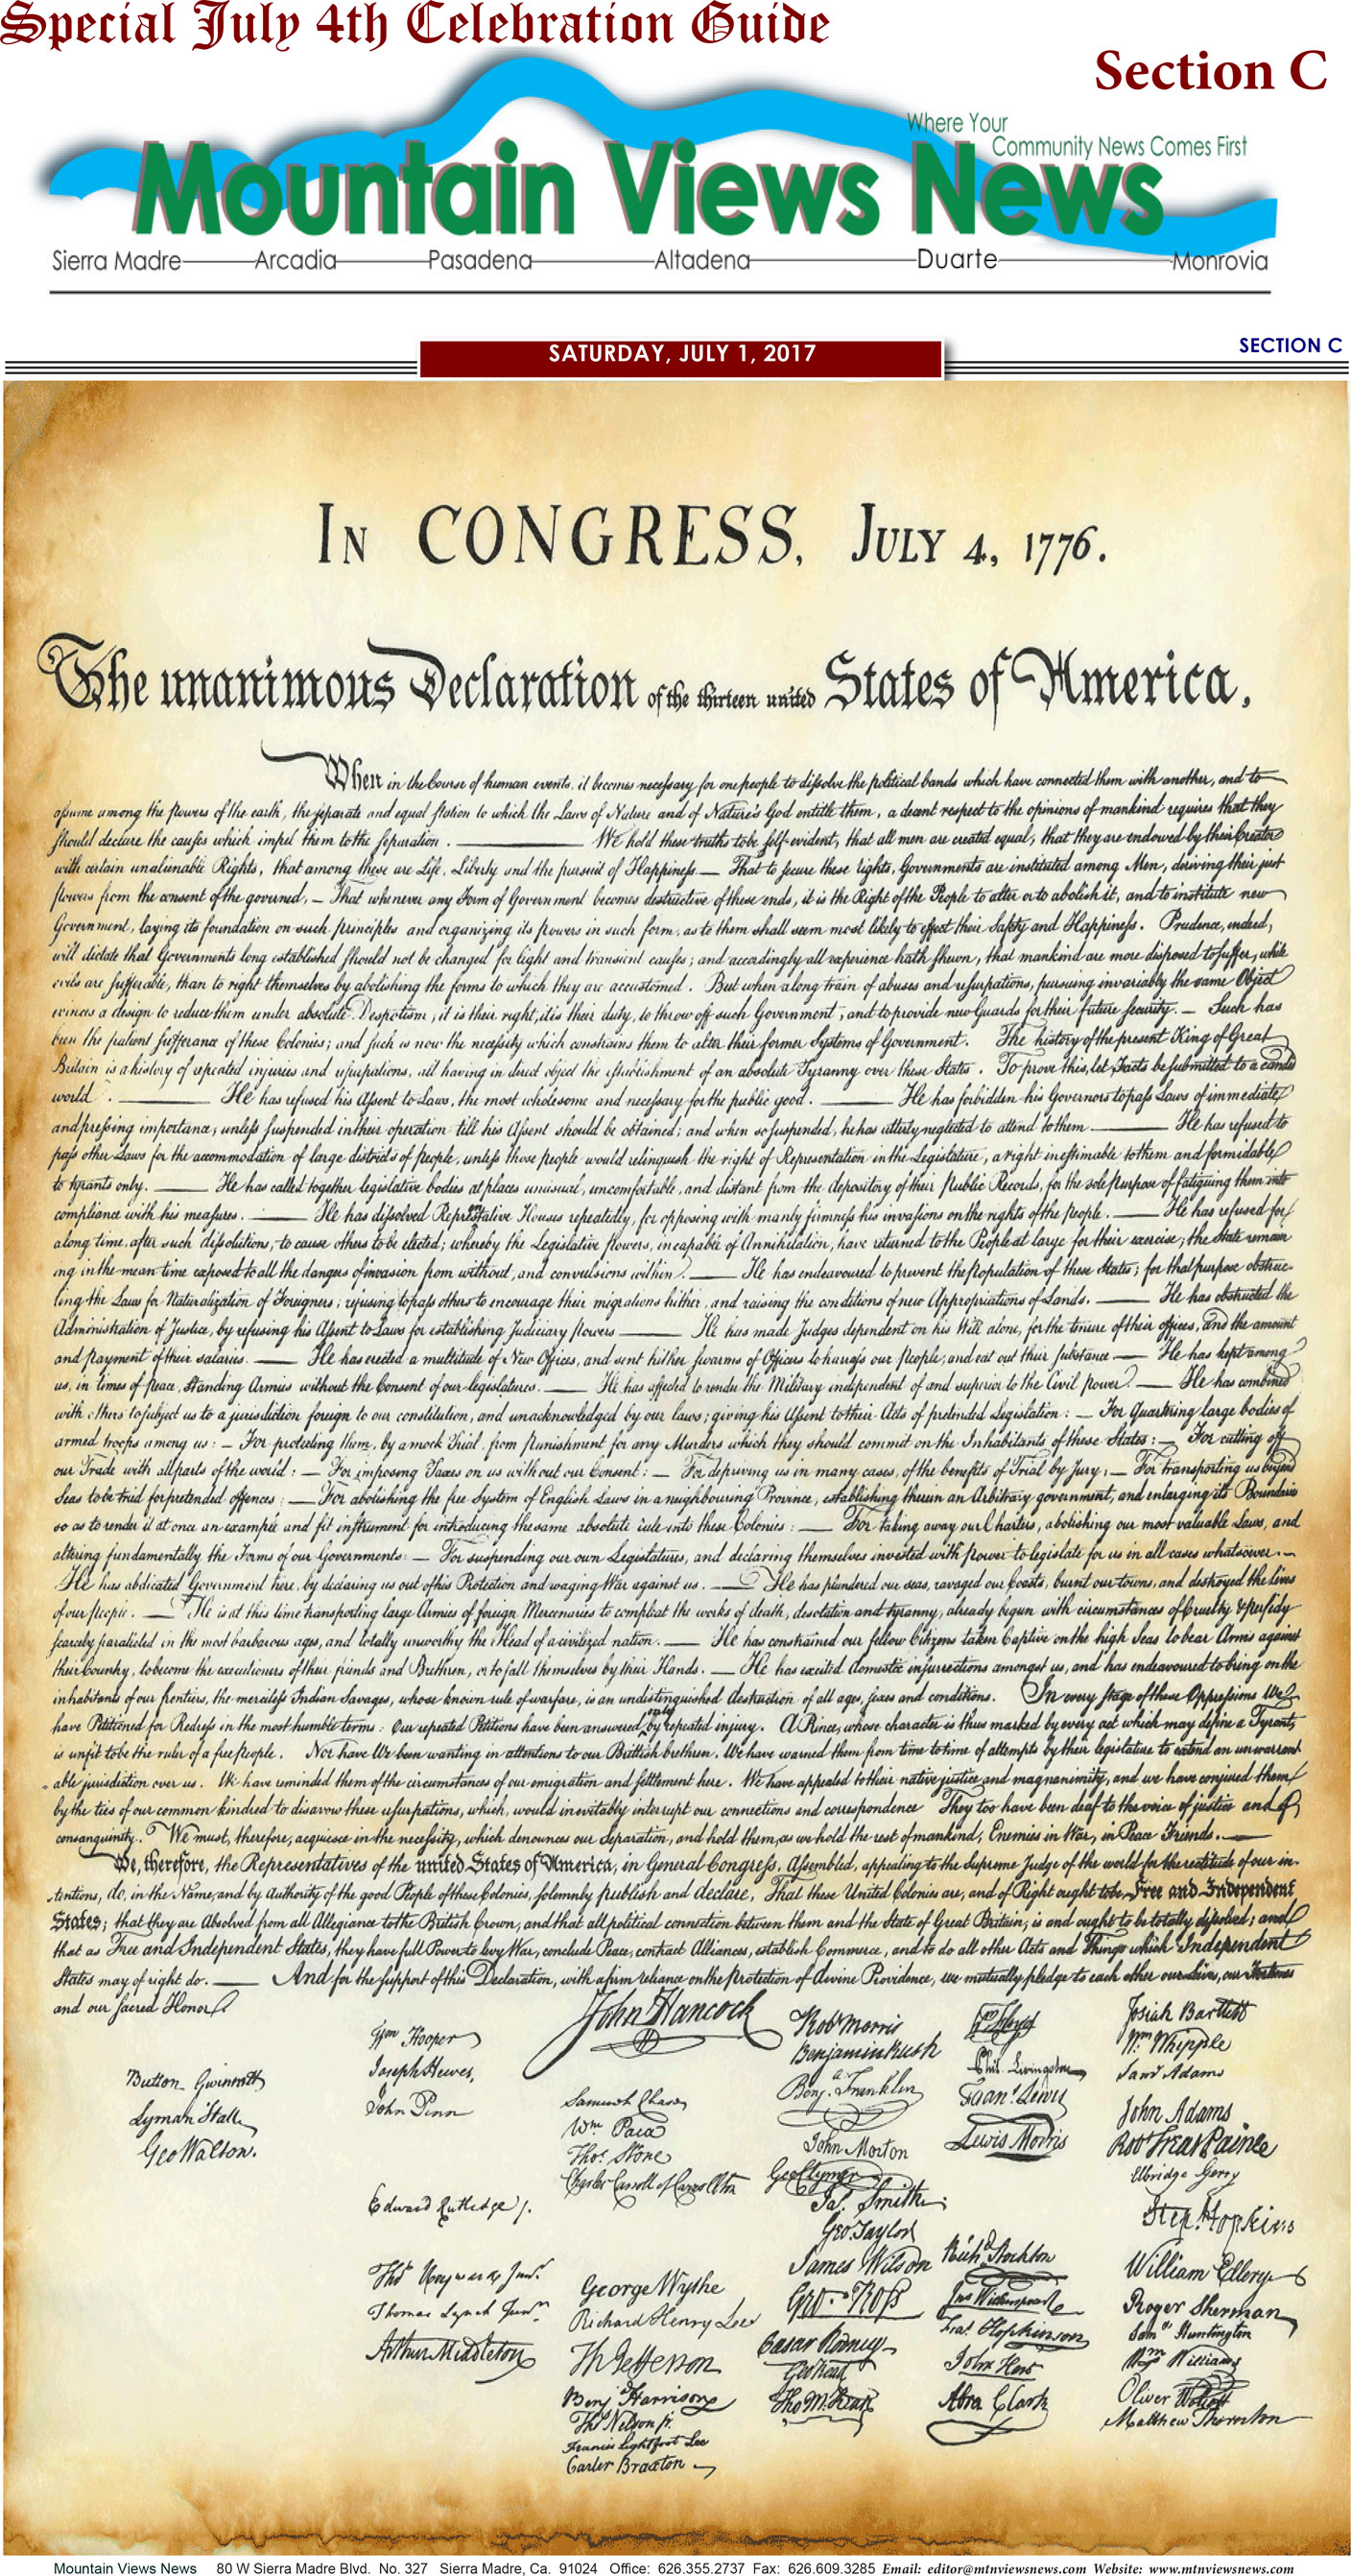 Special July 4th Celebration Guide
Section C
Where Your
Community News Comes First
Mountain Views News
Sierra Madre Arcadia Pasadena Altadena Duarte Monrovia
SATURDAY, JULY 1, 2017
SECTION C
IN CONGRESS, JULY 4, 1776.
The unanimous Declaration of the thirteen united States of America,
When in the Course of human events, it becomes necessary for one people to dissolve the political bands which have connected them with another, and to
assume among the powers of the earth, the separate and equal station to which the Laws of Nature and of Nature's God entitle them, a decent respect to the opinions of mankind requires that they
should declare the causes which impel them to the separation. — We hold these truths to be self-evident, that all men are created equal, that they are endowed by their Creator
with certain unalienable Rights, that among these are Life, Liberty and the pursuit of Happiness. — That to secure these rights, Governments are instituted among Men, deriving their just
powers from the consent of the governed, — That whenever any Form of Government becomes destructive of these ends, it is the Right of the People to alter or to abolish it, and to institute new
Government, laying its foundation on such principles and organizing its powers in such form, as to them shall seem most likely to effect their Safety and Happiness. Prudence, indeed,
will dictate that Governments long established should not be changed for light and transient causes; and accordingly all experience hath shewn, that mankind are more disposed to suffer, while
evils are sufferable, than to right themselves by abolishing the forms to which they are accustomed. But when a long train of abuses and usurpations, pursuing invariably the same Object
evinces a design to reduce them under absolute Despotism, it is their right, it is their duty, to throw off such Government, and to provide new Guards for their future security. — Such has
been the patient sufferance of these Colonies; and such is now the necessity which constrains them to alter their former Systems of Government. The history of the present King of Great
Britain is a history of repeated injuries and usurpations, all having in direct object the establishment of an absolute Tyranny over these States. To prove this, let Facts be submitted to a candid
world. — He has refused his Assent to Laws, the most wholesome and necessary for the public good. — He has forbidden his Governors to pass Laws of immediate
and pressing importance, unless suspended in their operation till his Assent should be obtained; and when so suspended, he has utterly neglected to attend to them. — He has refused to
pass other Laws for the accommodation of large districts of people, unless those people would relinquish the right of Representation in the Legislature, a right inestimable to them and formidable
to tyrants only. — He has called together legislative bodies at places unusual, uncomfortable, and distant from the depository of their Public Records, for the sole purpose of fatiguing them into
compliance with his measures. — He has dissolved Representative Houses repeatedly, for opposing with manly firmness his invasions on the rights of the people. — He has refused for
a long time, after such dissolutions, to cause others to be elected; whereby the Legislative powers, incapable of Annihilation, have returned to the People at large for their exercise; the State remain
ing in the mean time exposed to all the dangers of invasion from without, and convulsions within. — He has endeavoured to prevent the population of these States; for that purpose obstruc-
ting the Laws for Naturalization of Foreigners; refusing to pass others to encourage their migrations hither, and raising the conditions of new Appropriations of Lands. — He has obstructed the
Administration of Justice, by refusing his Assent to Laws for establishing Judiciary powers — He has made Judges dependent on his Will alone, for the tenure of their offices, and the amount
and payment of their salaries. — He has erected a multitude of New Offices, and sent hither swarms of Officers to harrass our people, and eat out their substance. — He has kept among
us, in times of peace, Standing Armies without the Consent of our legislatures. — He has affected to render the Military independent of and superior to the Civil power. — He has combined
with others to subject us to a jurisdiction foreign to our constitution, and unacknowledged by our laws; giving his Assent to their Acts of pretended Legislation: — For Quartering large bodies of
armed troops among us: — For protecting them, by a mock Trial, from punishment for any Murders which they should commit on the Inhabitants of these States: — For cutting off
our Trade with all parts of the world: — For imposing Taxes on us without our Consent: — For depriving us in many cases, of the benefits of Trial by Jury; — For transporting us beyond
Seas to be tried for pretended offences: — For abolishing the free System of English Laws in a neighbouring Province, establishing therein an Arbitrary government, and enlarging its Boundaries
so as to render it at once an example and fit instrument for introducing the same absolute rule into these Colonies: — For taking away our Charters, abolishing our most valuable Laws, and
altering fundamentally the Forms of our Governments: — For suspending our own Legislatures, and declaring themselves invested with power to legislate for us in all cases whatsoever. —
He has abdicated Government here, by declaring us out of his Protection and waging War against us. — He has plundered our seas, ravaged our Coasts, burnt our towns, and destroyed the lives
of our people. — He is at this time transporting large Armies of foreign Mercenaries to compleat the works of death, desolation and tyranny, already begun with circumstances of Cruelty & perfidy
scarcely paralleled in the most barbarous ages, and totally unworthy the Head of a civilized nation. — He has constrained our fellow Citizens taken Captive on the high Seas to bear Arms against
their Country, to become the executioners of their friends and Brethren, or to fall themselves by their Hands. — He has excited domestic insurrections amongst us, and has endeavoured to bring on the
inhabitants of our frontiers, the merciless Indian Savages, whose known rule of warfare, is an undistinguished destruction of all ages, sexes and conditions. In every stage of these Oppressions We
have Petitioned for Redress in the most humble terms: Our repeated Petitions have been answered only by repeated injury. A Prince, whose character is thus marked by every act which may define a Tyrant,
is unfit to be the ruler of a free People. Nor have We been wanting in attentions to our Brittish brethren. We have warned them from time to time of attempts by their legislature to extend an unwarrant
able jurisdiction over us. We have reminded them of the circumstances of our emigration and settlement here. We have appealed to their native justice and magnanimity, and we have conjured them
by the ties of our common kindred to disavow these usurpations, which, would inevitably interrupt our connections and correspondence They too have been deaf to the voice of justice and of
consanguinity. We must, therefore, acquiesce in the necessity, which denounces our Separation, and hold them, as we hold the rest of mankind, Enemies in War, in Peace Friends. —
We, therefore, the Representatives of the united States of America, in General Congress, Assembled, appealing to the Supreme Judge of the world for the rectitude of our in-
tentions, do, in the Name, and by Authority of the good People of these Colonies, solemnly publish and declare, That these United Colonies are, and of Right ought to be Free and Independent
States; that they are Absolved from all Allegiance to the British Crown, and that all political connection between them and the State of Great Britain, is and ought to be totally dissolved; and
that as Free and Independent States, they have full Power to levy War, conclude Peace, contract Alliances, establish Commerce, and to do all other Acts and Things which Independent
States may of right do. — And for the support of this Declaration, with a firm reliance on the protection of divine Providence, we mutually pledge to each other our Lives, our Fortunes
and our sacred Honor
Button Gwinnett
Lyman Hall
Geo Walton.
Wm Hooper
Joseph Hewes,
John Penn
Edward Rutledge
Thos Heyward Junr.
Thomas Lynch Junr.
Arthur Middleton
John Hancock
Samuel Chase
Wm. Paca
Thos. Stone
Charles Carroll of Carrollton
George Wythe
Richard Henry Lee
Th Jefferson
Benj Harrison
Thos Nelson jr.
Francis Lightfoot Lee
Carter Braxton
Robt Morris
Benjamin Rush
Benj. Franklin
John Morton
Geo Clymer
Jas. Smith
Geo. Taylor
James Wilson
Geo. Ross
Caesar Rodney
Geo Read
Tho M:Kean
Wm Floyd
Phil. Livingston
Frans. Lewis
Lewis Morris
Richd. Stockton
Jno Witherspoon
Fras. Hopkinson
John Hart
Abra Clark
Josiah Bartlett
Wm Whipple
Saml Adams
John Adams
Robt Treat Paine
Elbridge Gerry
Step. Hopkins
William Ellery
Roger Sherman
Saml Huntington
Wm Williams
Oliver Wolcott
Matthew Thornton
Mountain Views News 80 W Sierra Madre Blvd. No. 327 Sierra Madre, Ca. 91024 Office: 626.355.2737 Fax: 626.609.3285 Email: editor@mtnviewsnews.com Website: www.mtnviewsnews.com